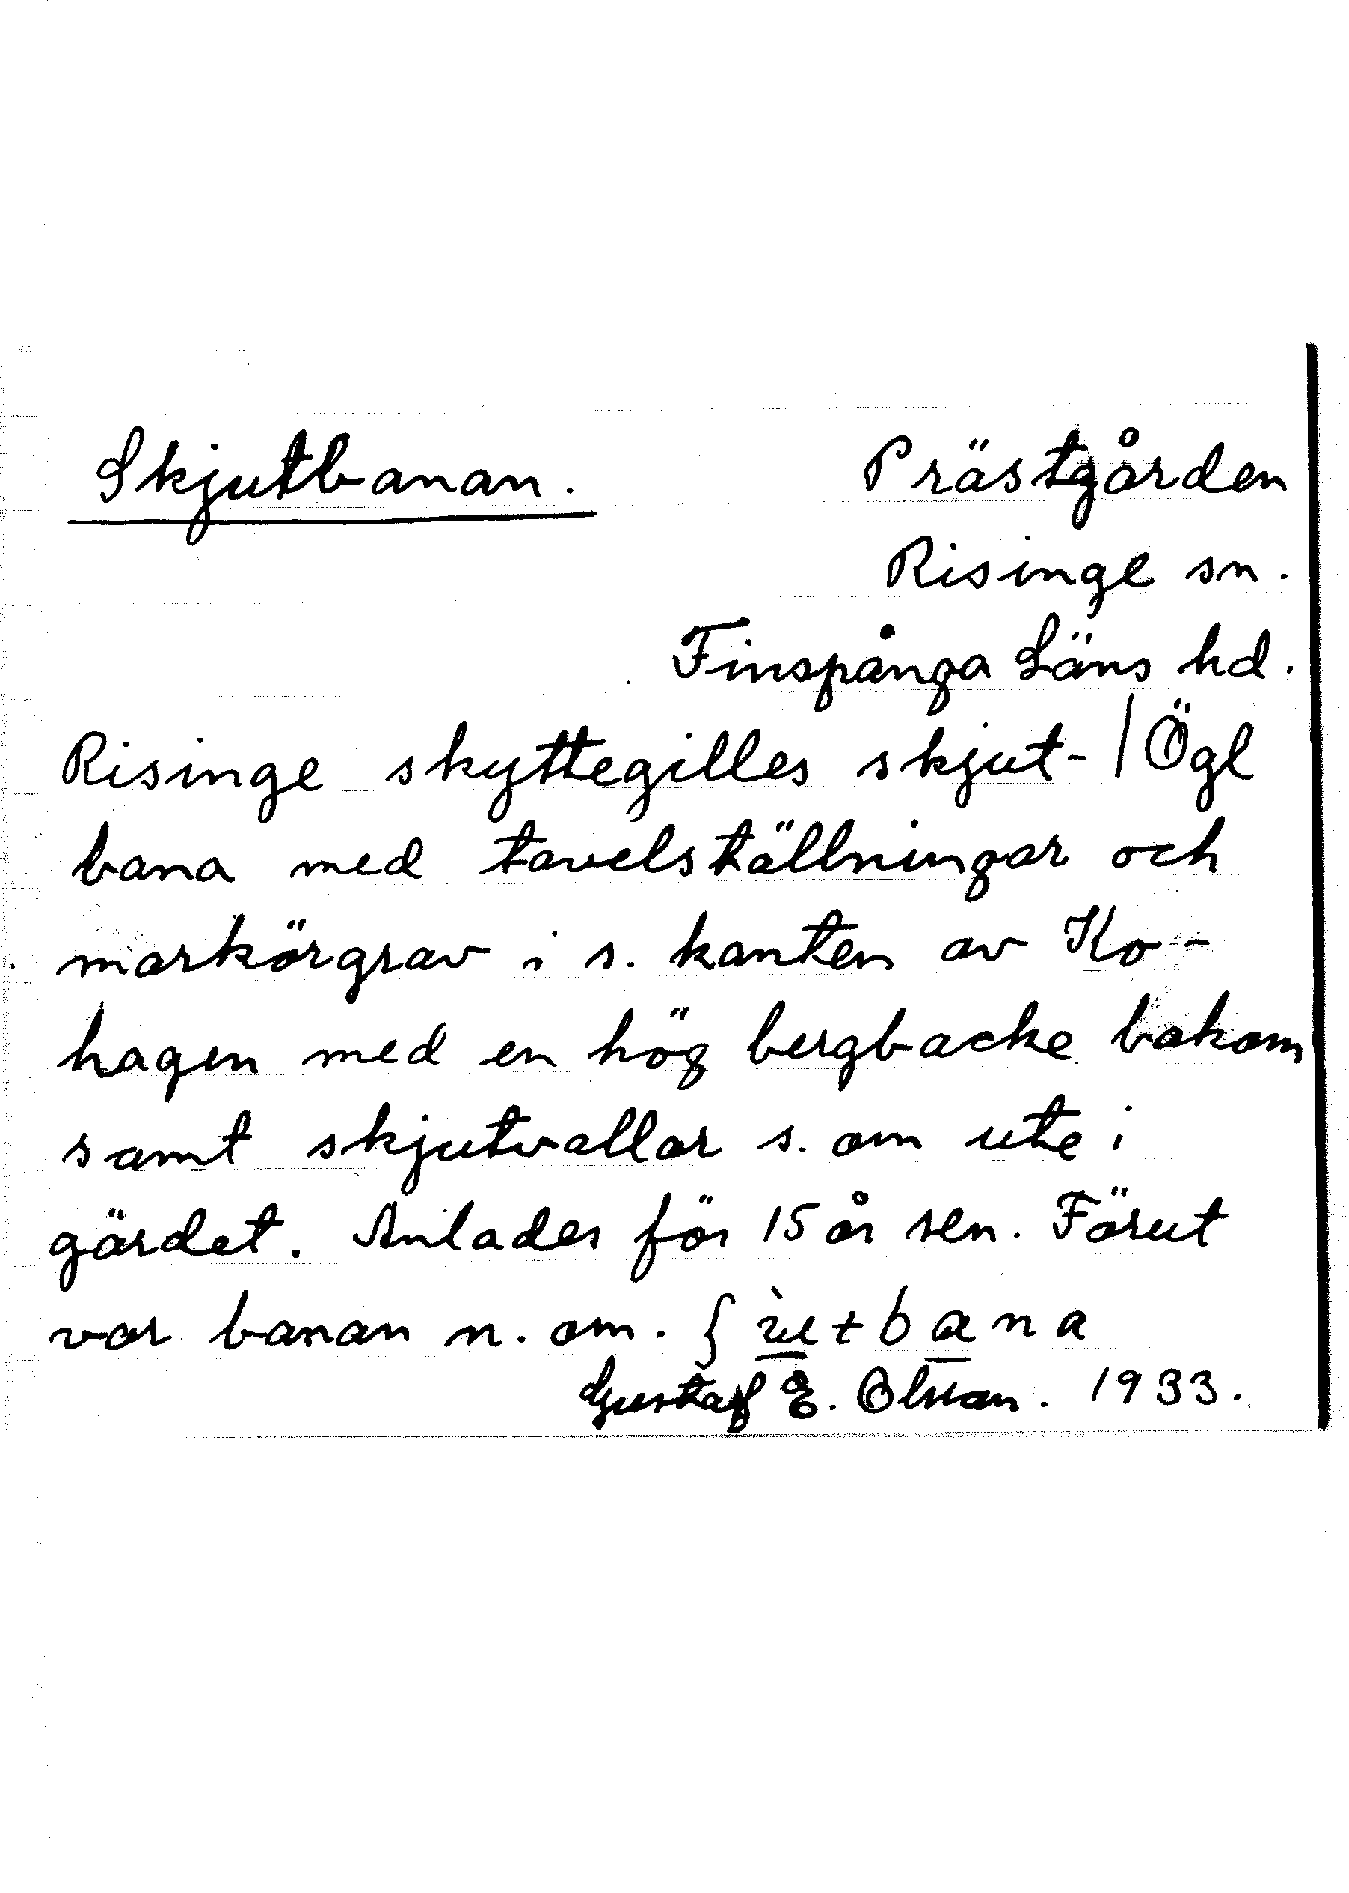 Skjutbanan.
Prästgården
Risinge sn.
Finspånga Läns hd.
Risinge skyttegilles skjut- / Ögl
bana med tavelställningar och
markörgrav i s. kanten av Ko-
hagen med en hög bergbacke bakom
samt skjutvallar s. om ute i
gärdet. Anlades för 15 år sen. Förut
var banan n. om. ʃùtbana
Gustaf E. Olsson. 1933.